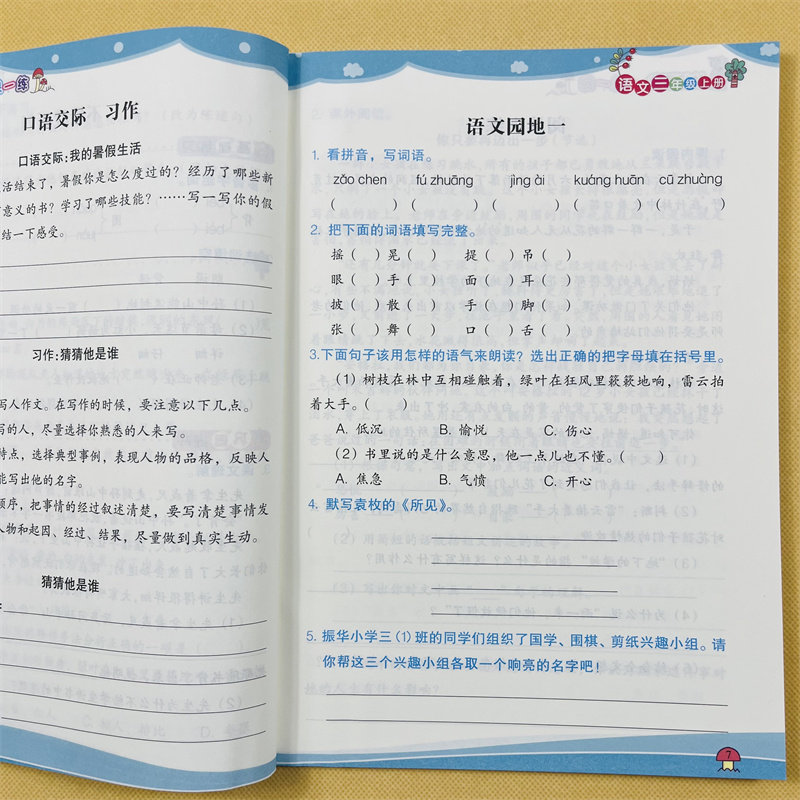 一练
口语交际 习作
口语交际:我的暑假生活
活结束了，暑假你是怎么度过的？经历了哪些新
意义的书？学习了哪些技能？……写一写你的假
结一下感受。
习作:猜猜他是谁
写人作文。在写作的时候，要注意以下几点。
写的人，尽量选择你熟悉的人来写。
特点，选择典型事例，表现人物的品格，反映人
能写出他的名字。
顺序，把事情的经过叙述清楚，要写清楚事情发
人物和起因、经过、结果，尽量做到真实生动。
猜猜他是谁
语文三年级上册
语文园地一
1. 看拼音，写词语。
zǎo chen fú zhuāng jìng ài kuáng huān cū zhuàng
( ) ( ) ( ) ( ) ( )
2. 把下面的词语填写完整。
摇( )晃( ) 提( )吊( )
眼( )手( ) 面( )耳( )
披( )散( ) 手( )脚( )
张( )舞( ) 口( )舌( )
3.下面句子该用怎样的语气来朗读？选出正确的把字母填在括号里。
(1) 树枝在林中互相碰触着，绿叶在狂风里簌簌地响，雷云拍
着大手。( )
A. 低沉 B. 愉悦 C. 伤心
(2) 书里说的是什么意思，他一点儿也不懂。( )
A. 焦急 B. 气愤 C. 开心
4. 默写袁枚的《所见》。
5. 振华小学三 (1) 班的同学们组织了国学、围棋、剪纸兴趣小组。请
你帮这三个兴趣小组各取一个响亮的名字吧！
7